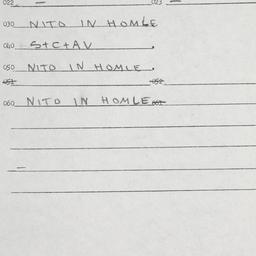 022 — 023 —
030 NITO IN HOMLE
040 S+C+AV .
050 NITO IN HOMLE .
051 052
060 NITO IN HOMLE 061
—